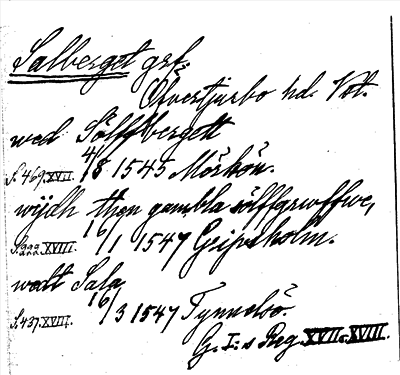 Salberget grf.
Öfvertjurbo hd. Vstl.
wed Sölffbergett
S. 469. XVII. 4/8 1545 Mörkön.
wijdh then gambla sölffgruffwe,
XVIII. 16/1 1547 Gripsholm.
wedt Sala
S. 437. XVIII. 16/3 1547 Tynnelsö.
G. I:s Reg. XVII o. XVIII.